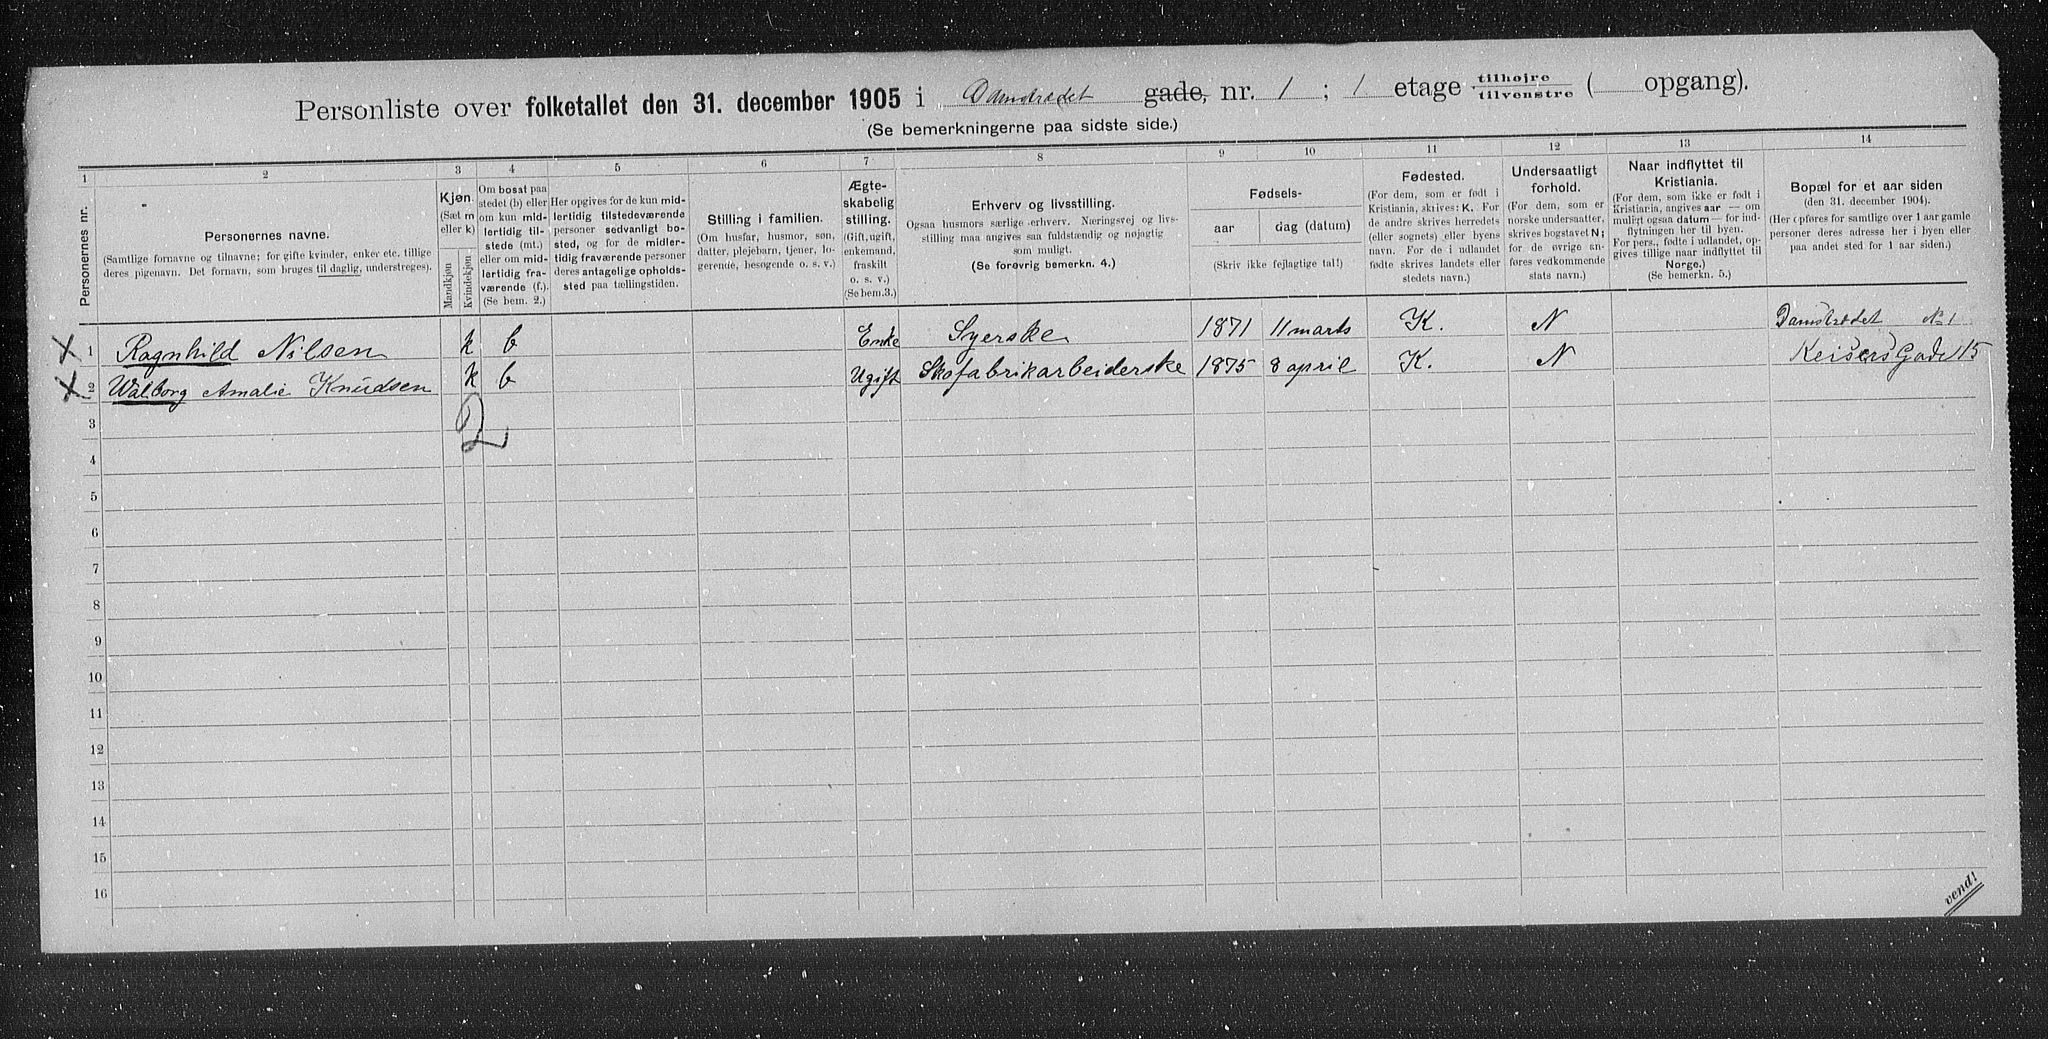 Personliste over folketallet den 31. december 1905 i Damstrædet gade, nr. 1 ; 1 etage tilhøjre tilvenstre ( opgang).
(Se bemerkningerne paa sidste side.)
1 2 3 4 5 6 7 8 9 10 11 12 13 14
Personernes nr.
Personernes navne.
(Samtlige fornavne og tilnavne; for gifte kvinder, enker etc. tillige
deres pigenavn. Det fornavn, som bruges til daglig, understreges).
Kjøn.
(Sæt m
eller k)
Mandkjøn
Kvindekjøn
Om bosat paa
stedet (b) eller
om kun mid-
lertidig til-
stede (mt.)
eller om mid-
lertidig fra-
værende (f.).
(Se bem. 2.)
Her opgives for de kun mid-
lertidig tilstedeværende
personer sedvanlig bo-
sted, og for de midler-
tidig fraværende personer
deres antagelige opholds-
sted paa tællingstiden.
Stilling i familien.
(Om husfar, husmor, søn,
datter, plejebarn, tjener, lo-
gerende, besøgende o. s. v.)
Ægte-
skabelig
stilling.
(Gift, ugift,
enkemand,
fraskilt
o. s. v.)
(Se bem.3.)
Erhverv og livsstilling.
Ogsaa husmors særlige erhverv. Næringsvej og livs-
stilling maa angives saa fuldstændig og nøjagtig
som muligt.
(Se forøvrig bemerkn. 4.)
Fødsels-
aar dag (datum)
(Skriv ikke fejlagtige tal!)
Fødested.
(For dem, som er født i
Kristiania, skrives: K. For
de andre skrives herredets
(eller sognets) eller byens
navn. For de i udlandet
fødte skrives landets eller
stedets navn.)
Undersaatligt
forhold.
(For dem, som er
norske undersaatter,
skrives bogstavet N;
for de øvrige an-
føres vedkommende
stats navn.)
Naar indflyttet til
Kristiania.
(For dem, som ikke er født i
Kristiania, angives aar — om
muligt ogsaa datum — for ind-
flytningen her til byen.
For pers., fødte i udlandet, op-
gives tillige naar indflyttet til
Norge.)
(Se bemerkn. 5.)
Bopæl for et aar siden
(den 31. december 1904).
(Her opføres for samtlige over 1 aar gamle
personer deres adresse her i byen eller
paa andet sted for 1 aar siden.)
X 1 Ragnhild Nilsen k b Enke Syerske 1871 11 marts K. N Damstrædet No 1
X 2 Walborg Amalie Knudsen k b Ugift Skofabrikarbeiderske 1875 8 april K. N Keisers Gade 15
2
3
4
5
6
7
8
9
10
11
12
13
14
15
16
vend!